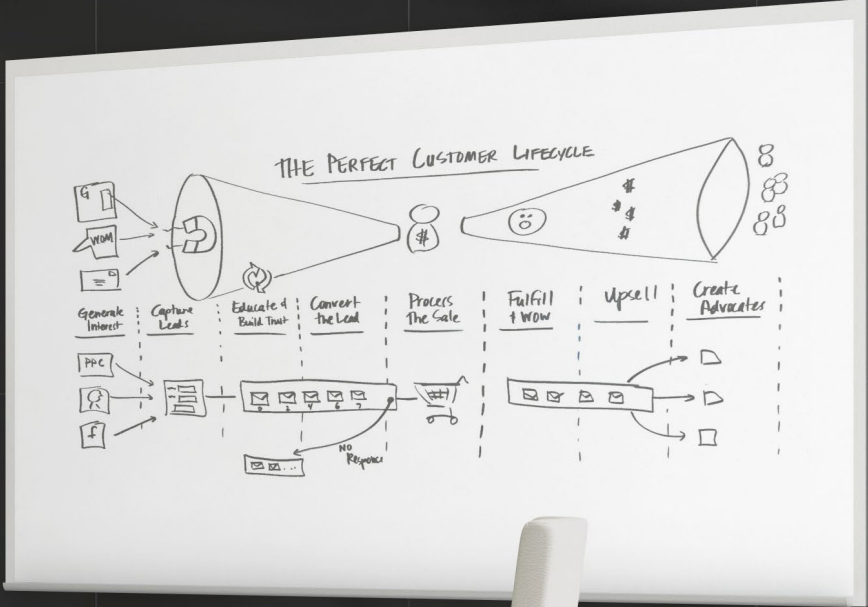 THE PERFECT CUSTOMER LIFECYCLE
G
WOM
$
$
$
$
$
Generate
Interest
Capture
Leads
Educate &
Build Trust
Convert
the Lead
Process
The Sale
Fulfill
+ WOW
Upsell
Create
Advocates
PPC
f
NO
Response